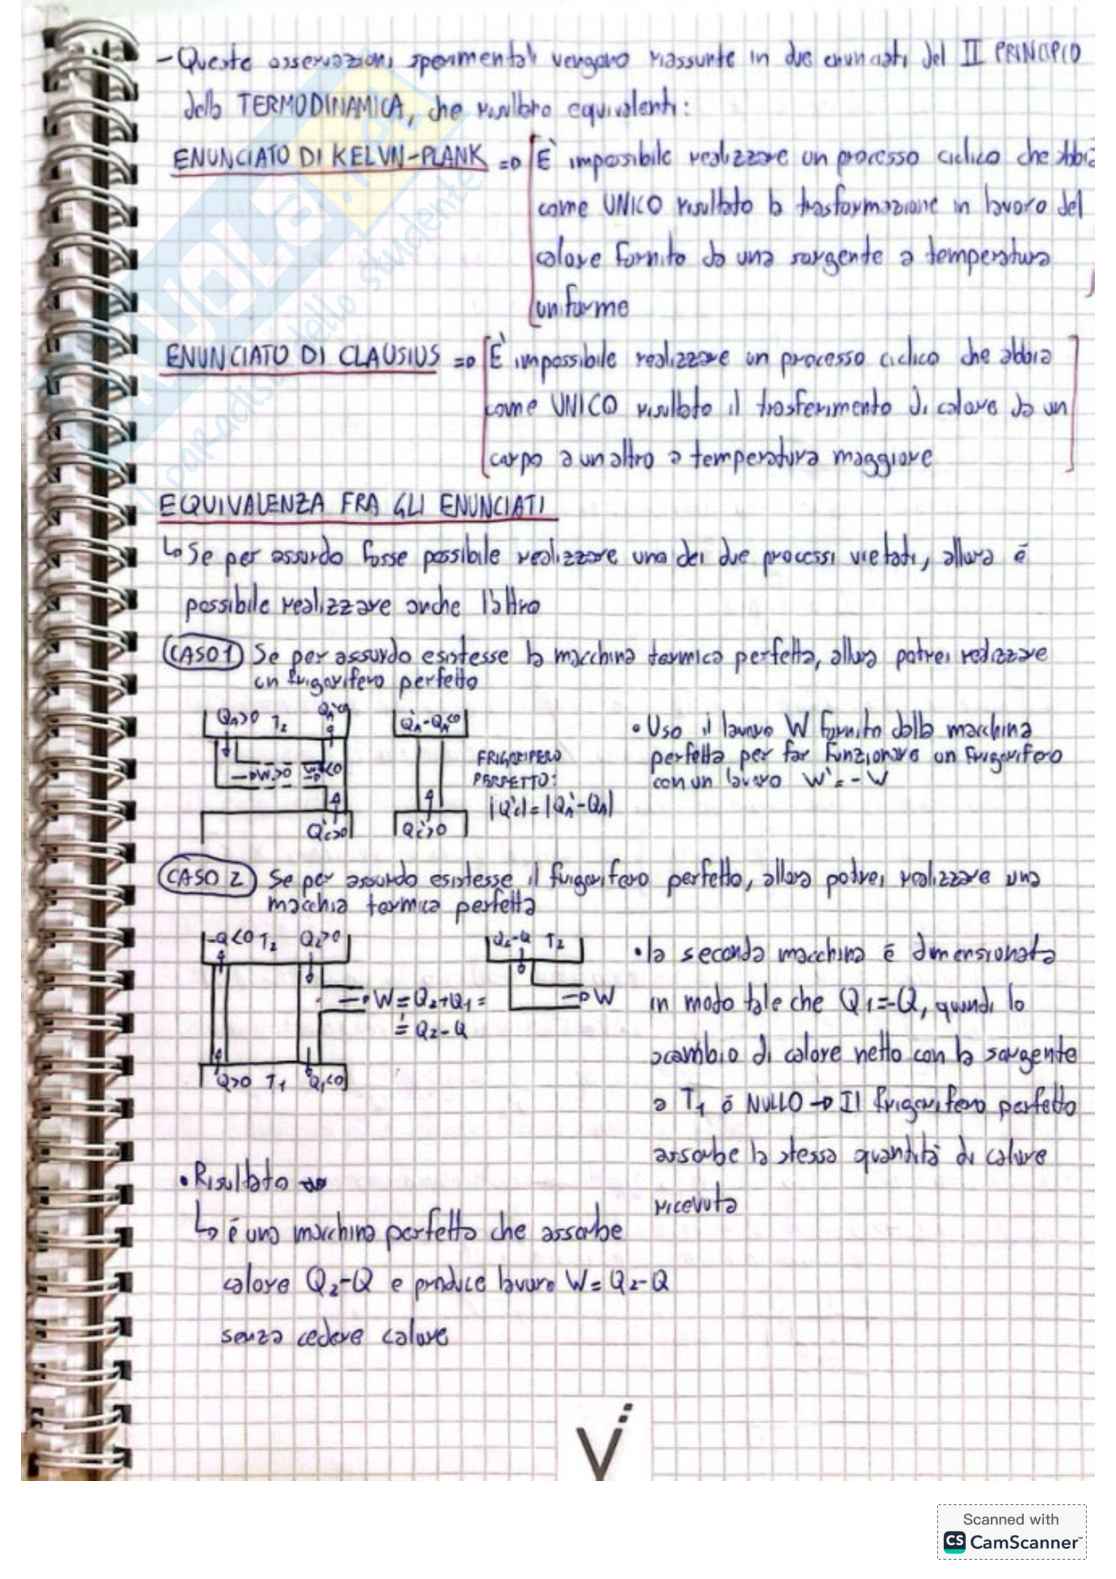 - Queste osservazioni sperimentali vengono riassunte in due enunciati del II PRINCIPIO
della TERMODINAMICA, che risultano equivalenti:
ENUNCIATO DI KELVIN-PLANK => È impossibile realizzare un processo ciclico che abbia
come UNICO risultato la trasformazione in lavoro del
calore fornito da una sorgente a temperatura
uniforme
ENUNCIATO DI CLAUSIUS => È impossibile realizzare un processo ciclico che abbia
come UNICO risultato il trasferimento di calore da un
corpo a un altro a temperatura maggiore
EQUIVALENZA FRA GLI ENUNCIATI
↳ Se per assurdo fosse possibile realizzare uno dei due processi vietati, allora è
possibile realizzare anche l'altro
CASO 1 Se per assurdo esistesse la macchina termica perfetta, allora potrei realizzare
un frigorifero perfetto
QA>0 T2 QA'<0
→W>0 W'<0
Qc'>0
QA'-QA<0
Qc'>0
FRIGORIFERO
PERFETTO:
|Q'c|=|QA'-QA|
• Uso il lavoro W fornito dalla macchina
perfetta per far funzionare un frigorifero
con un lavoro W'=-W
CASO 2 Se per assurdo esistesse il frigorifero perfetto, allora potrei realizzare una
macchia termica perfetta
-Q<0 T2 Q2>0
→W=Q2+Q1=
= Q2-Q
Q>0 T1 Q1<0
Q2-Q T2
→W
• la seconda macchina è dimensionata
in modo tale che Q1=-Q, quindi lo
scambio di calore netto con la sorgente
a T1 è NULLO → Il frigorifero perfetto
assorbe la stessa quantità di calore
ricevuta
• Risultato
↳ è una macchina perfetta che assorbe
calore Q2-Q e produce lavoro W= Q2-Q
senza cedere calore
Scanned with
CS CamScanner